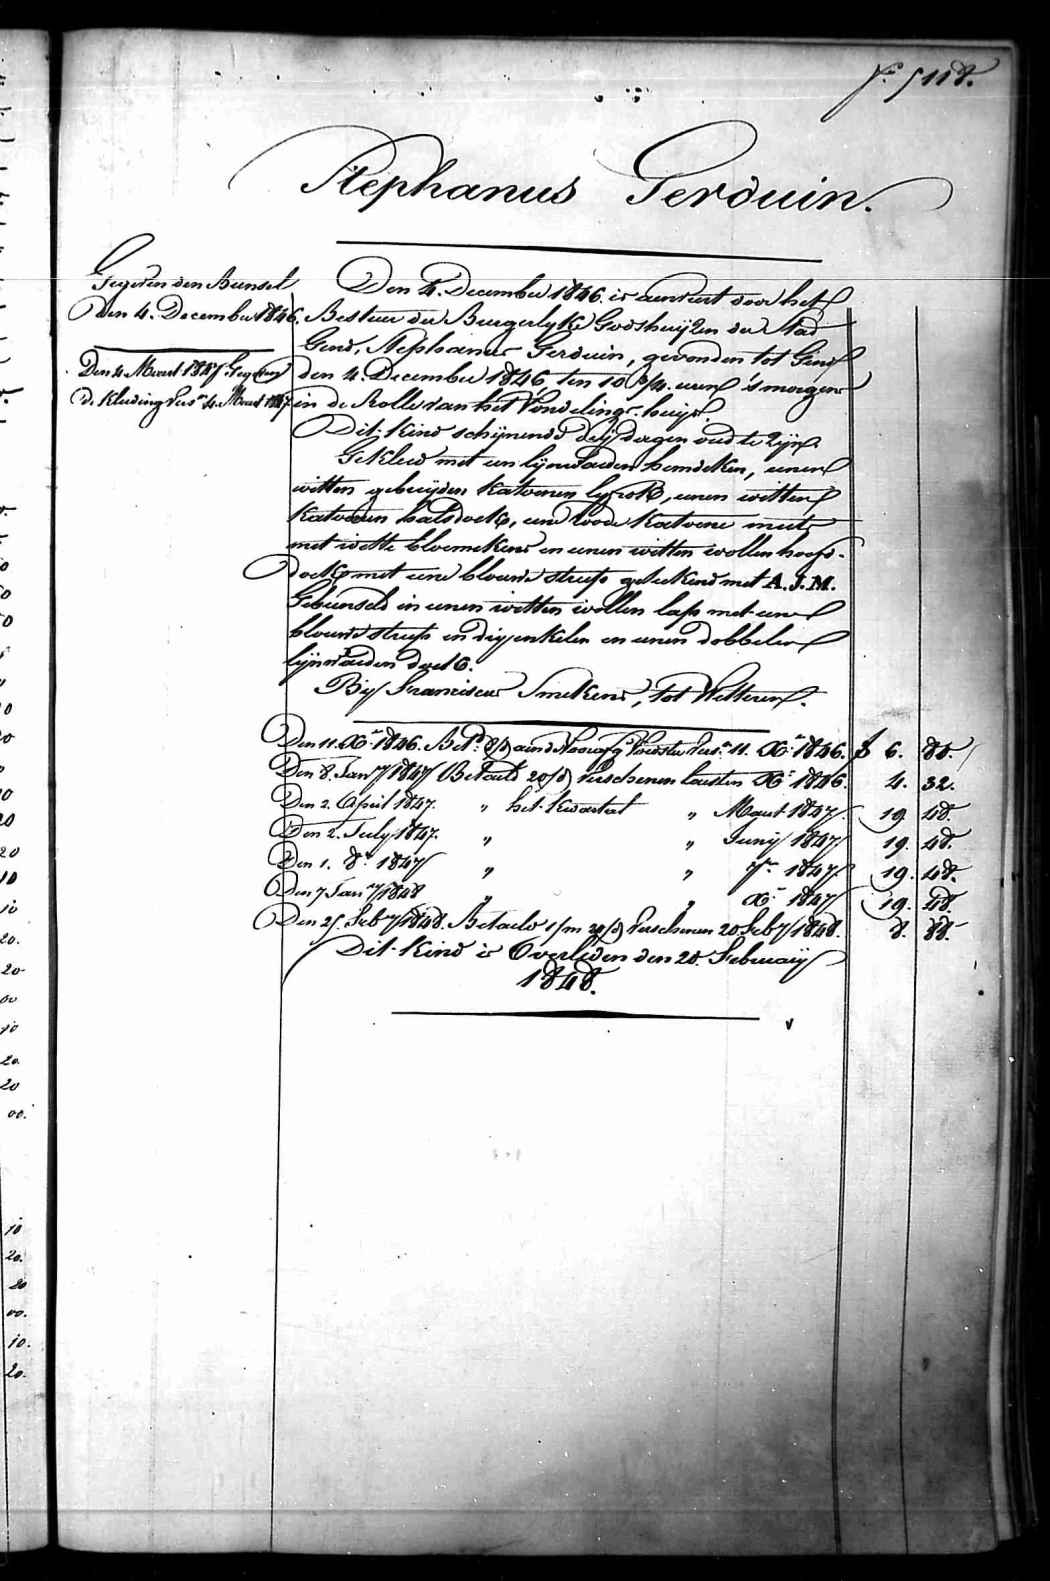 Fo 5118.
Stephanus Gerduin.
Gegeven den Bunsel
Den 4. December 1846.
Den 4 Maert 1847 Gegeven
de Kleding Vers.n 4. Maert 1847.
Den 4. December 1846. is aenveert door het
Bestuer der Burgerlyke Godshuijzen der Stad
Gend, Stephanus Gerduin, gevonden tot Gend
den 4. December 1846, ten 10 3/4. uren 's morgens
in de Rolle van het Vondelings-huijs.
Dit kind schijnende drij dagen oud te zijn.
Gekleed met een lijnwaeden hemdeken, eenen
witten gebreijden katoenen lijfrok, eenen witten
katoenen halsdoek, eene roode katoene muts
met witte bloemekens en eenen witten wollen hoofd-
doek met eene blauwe streep geteekend met A.J.M.
Gebunseld in eenen witten wollen lap met eene
blauwe streep en drij enkelen en eenen dobbelen
lijnwaeden doek.
Bij Franciscus Smekens, tot Wetteren.
Den 11. Xr 1846. Bet.d aend Voorafg. Voedster Vers.n 11. Xr 1846. f 6. 84.
Den 8. Jan.ry 1847 Betaeld 20/d Verschenen laesten Xr 1846. 4. 32.
Den 2. April 1847. " het kwartael " Maert 1847. 19. 48.
Den 2. July 1847. " " Junij 1847. 19. 48.
Den 1. 8r 1847 " " 7r 1847. 19. 48.
Den 7 Jan.ry 1848 " " Xr 1847 19. 48.
Den 25 Feb.ry 1848. Betaeld 1/m 20/d Verschenen 20 Feb.ry 1848. 8. 88.
Dit kind is Overleden den 20. February
1848.
10
20.
20
00.
10.
20.